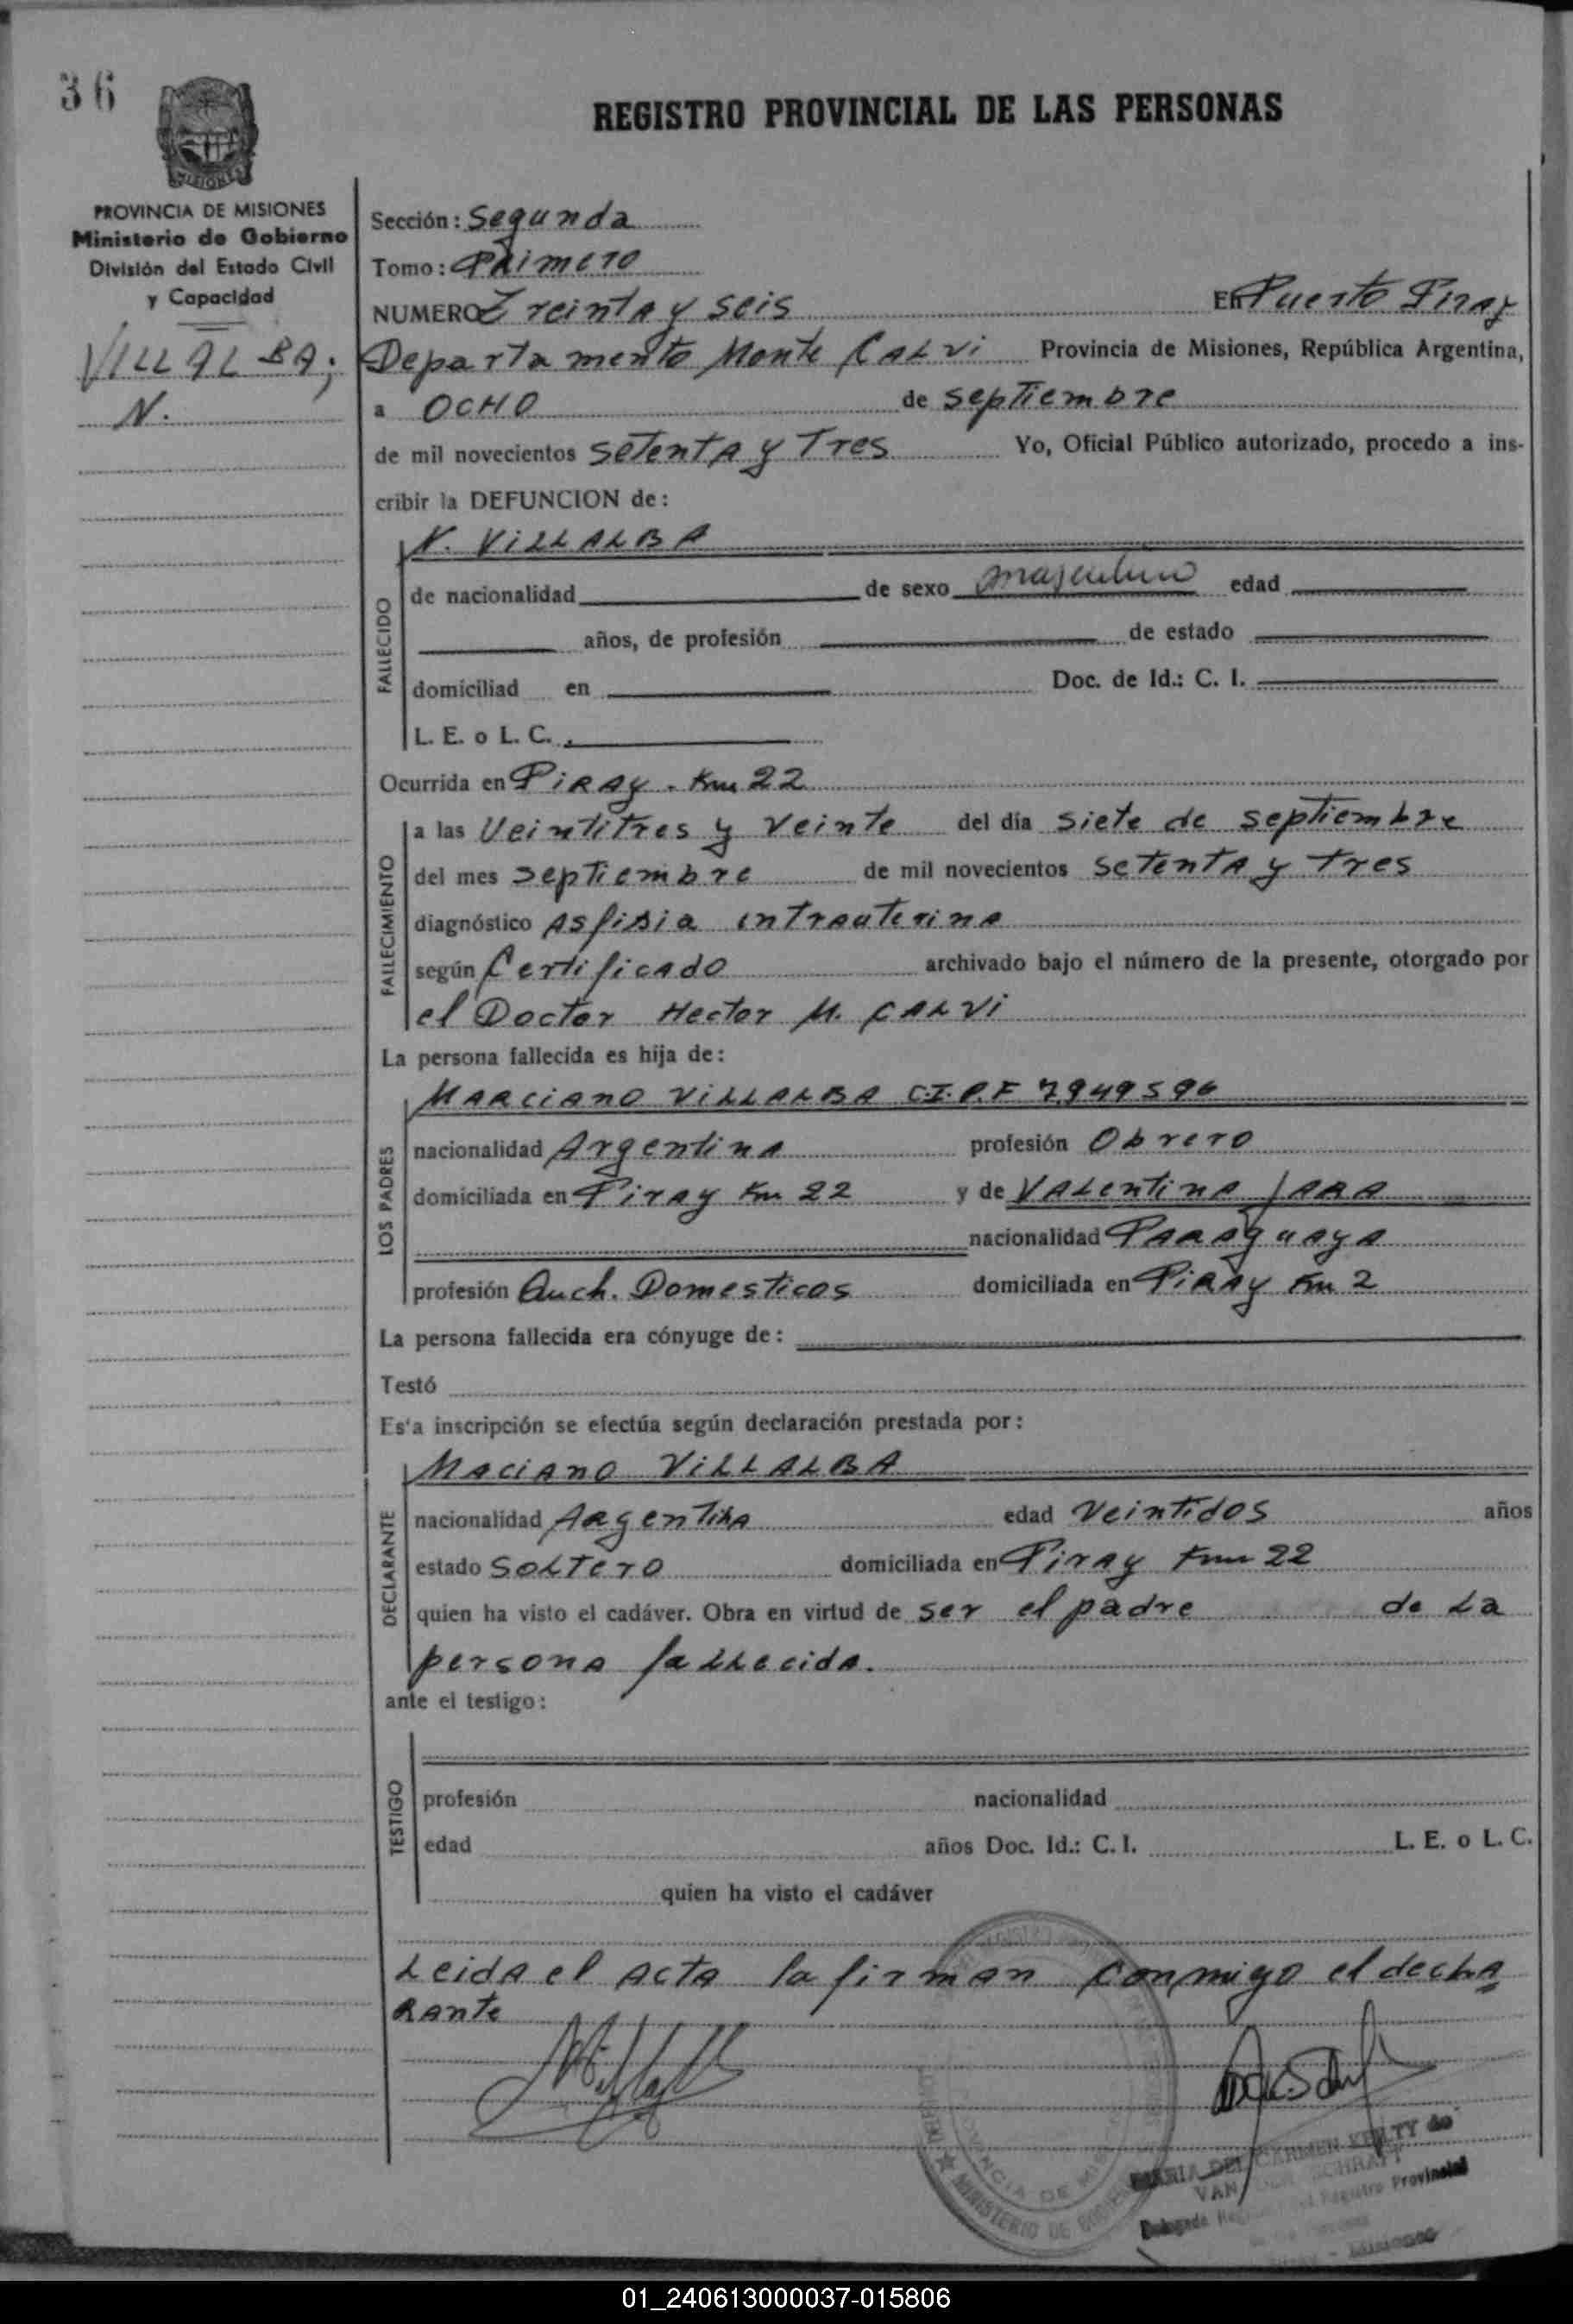 36
REGISTRO PROVINCIAL DE LAS PERSONAS
MISIONES
PROVINCIA DE MISIONES
Ministerio de Gobierno
División del Estado Civil
y Capacidad
VILLALBA;
N.
Sección: Segunda
Tomo: Primero
NUMERO Treinta y seis EN Puerto Piray
Departamento Monte CALVi Provincia de Misiones, República Argentina,
a OCHO de septiembre
de mil novecientos setenta y Tres Yo, Oficial Público autorizado, procedo a ins-
cribir la DEFUNCION de:
N. ViLLALBA
FALLECIDO
de nacionalidad de sexo masculino edad
años, de profesión de estado
domiciliad en Doc. de Id.: C. I.
L. E. o L. C.
Ocurrida en PiRAy. Km 22
FALLECIMIENTO
a las Veintitres y Veinte del día siete de septiembre
del mes septiembre de mil novecientos setenta y tres
diagnóstico Asfisia intrauterina
según Certificado archivado bajo el número de la presente, otorgado por
el Doctor Hector M. CALVi
La persona fallecida es hija de:
MARCiANO ViLLALBA C.I.P.F 7949596
LOS PADRES
nacionalidad Argentina profesión Obrero
domiciliada en Piray Km 22 y de VALentinA JARA
nacionalidad PARAguAyA
profesión Quch. Domesticos domiciliada en PiRAy Km 2
La persona fallecida era cónyuge de:
Testó
Es'a inscripción se efectúa según declaración prestada por:
MACiANO ViLLALBA
DECLARANTE
nacionalidad Argentina edad Veintidos años
estado SOLTero domiciliada en Piray Km 22
quien ha visto el cadáver. Obra en virtud de ser el padre de La
persona fallecida.
ante el testigo:
TESTIGO
profesión nacionalidad
edad años Doc. Id.: C. I. L. E. o L. C.
quien ha visto el cadáver
Leida el acta la firman conmigo el decla
rante
MINISTERIO DE GOBIERNO
PROVINCIA DE MISIONES
MARIA DEL CARMEN KELTY de
VAN DER SCHRAFT
Delegada Registro Provincial
Misiones
01_240613000037-015806